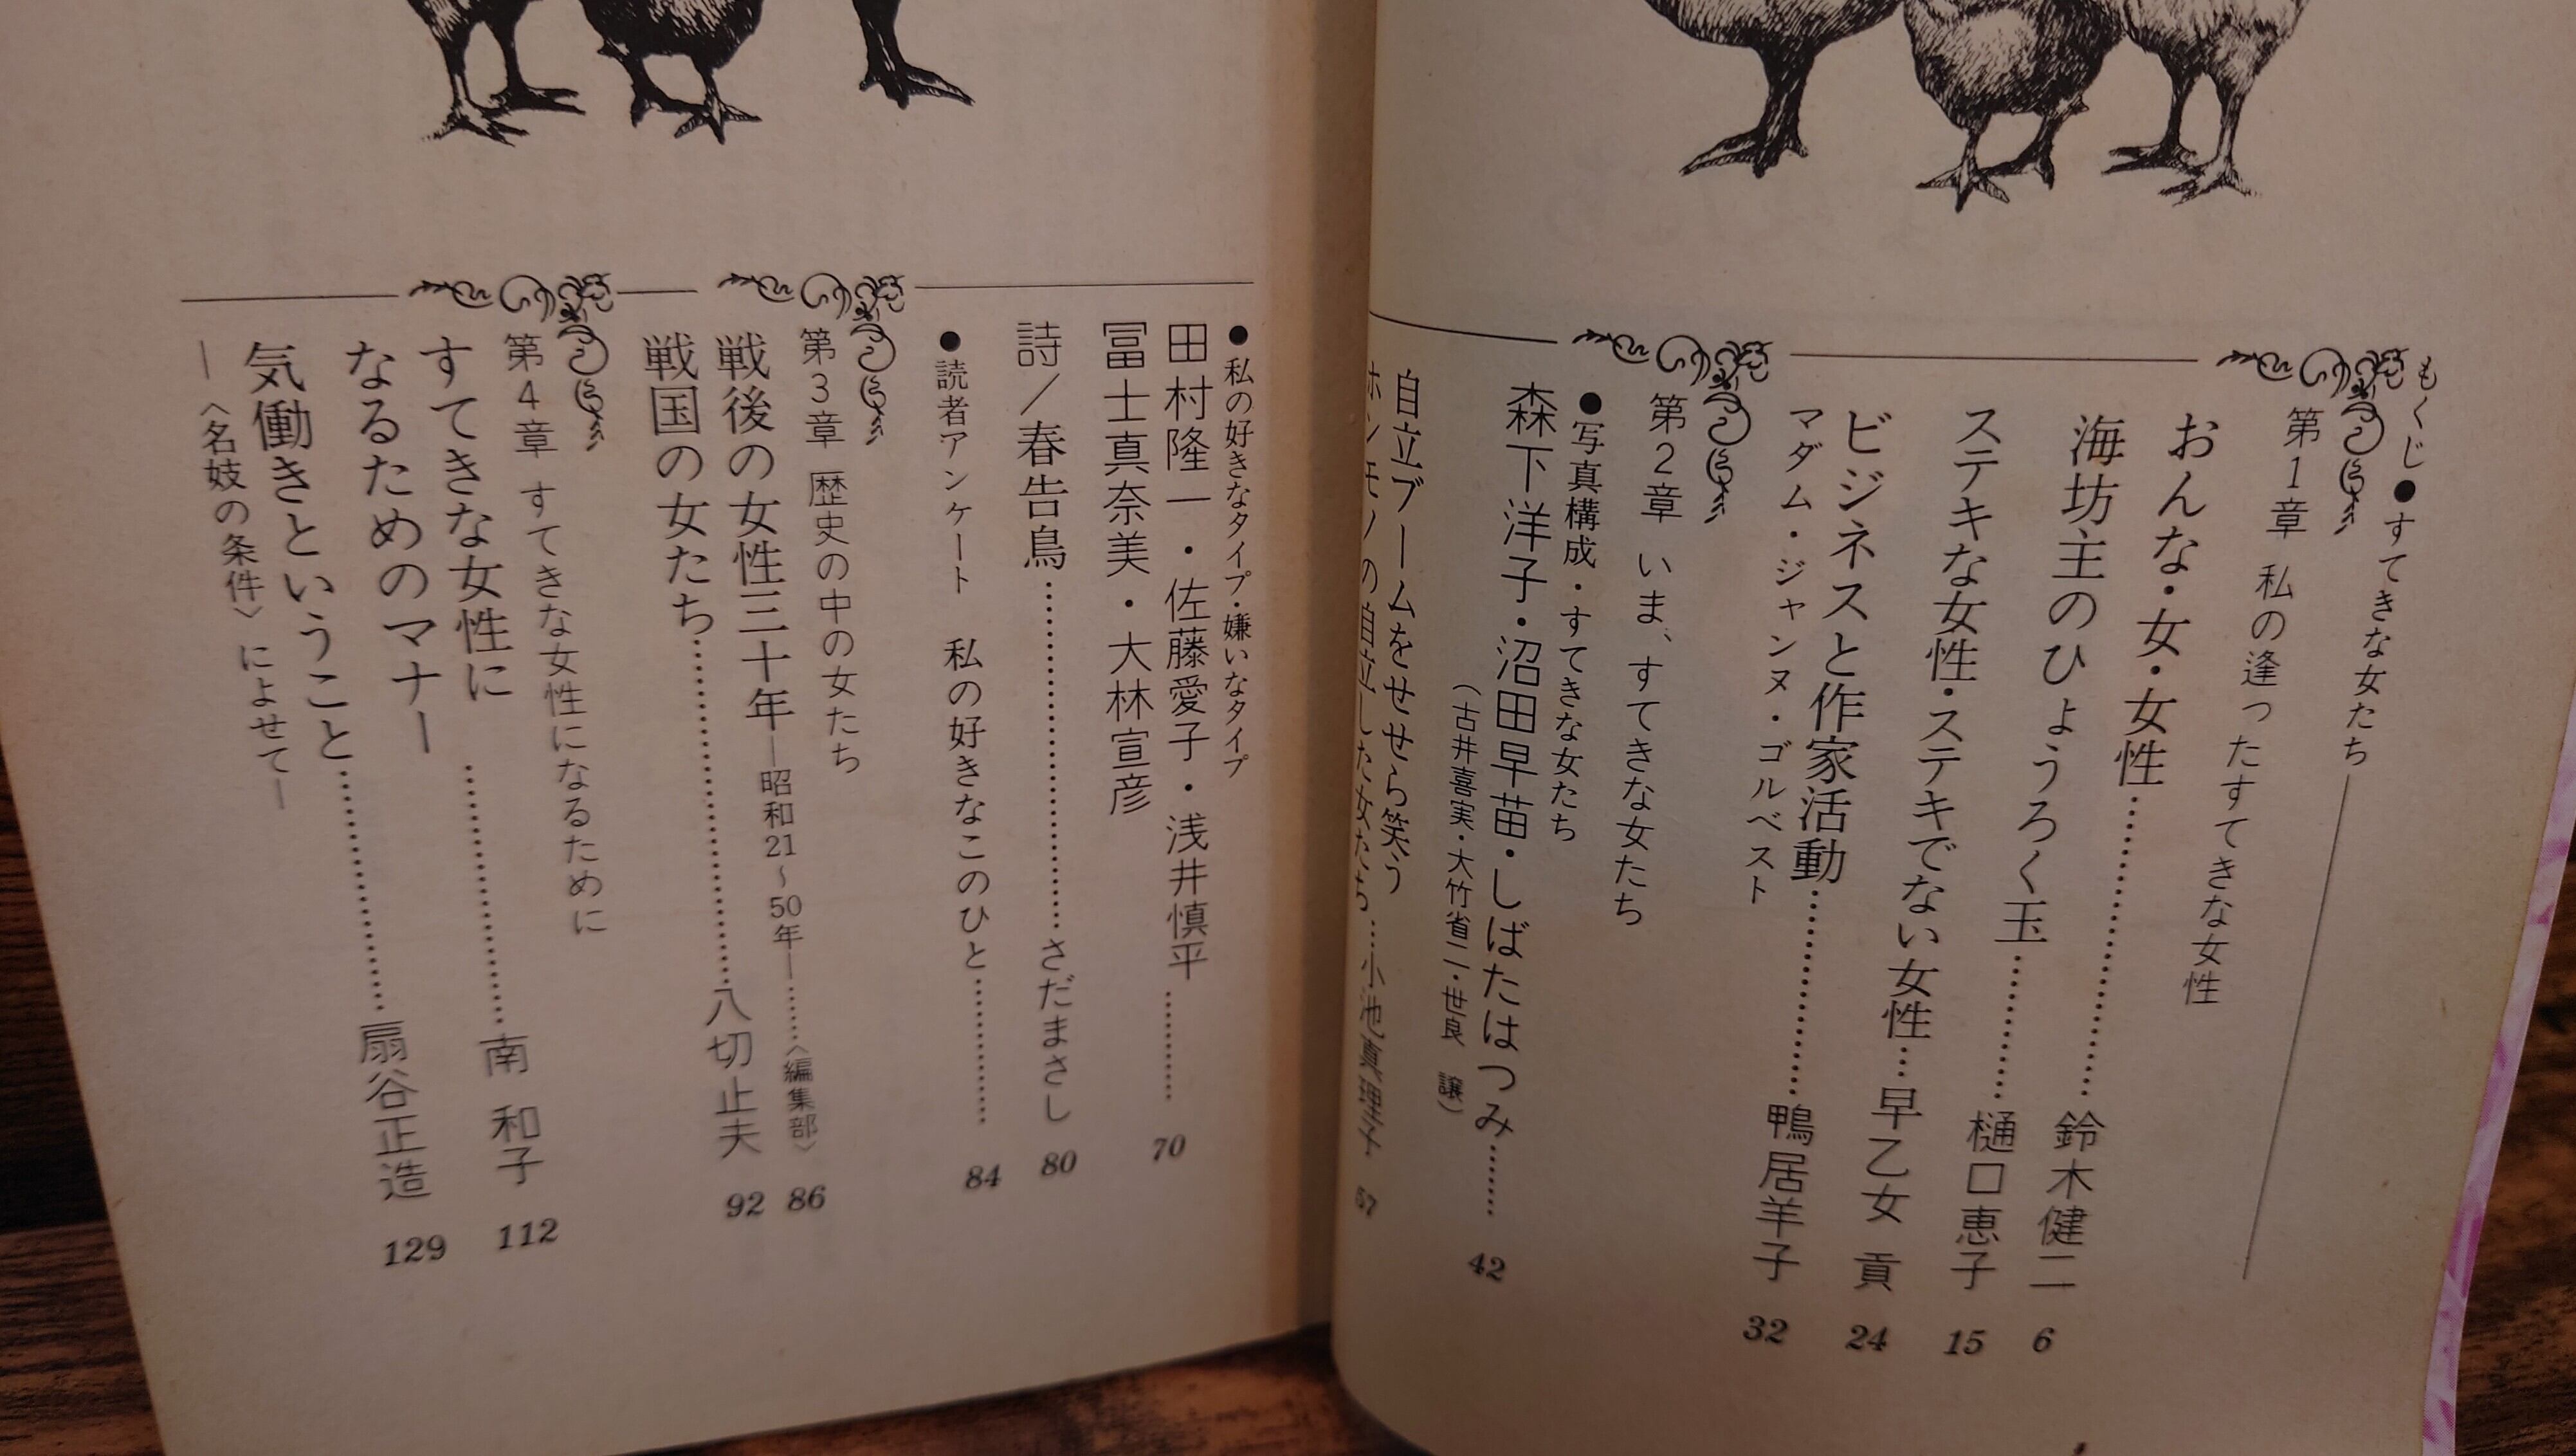 もくじ●すてきな女たち
第1章 私の逢ったすてきな女性
おんな・女・女性…………鈴木健二 6
海坊主のひょうろく玉…………樋口恵子 15
ステキな女性・ステキでない女性…早乙女 貢 24
ビジネスと作家活動…………鴨居羊子 32
マダム・ジャンヌ・ゴルベスト
第2章 いま、すてきな女たち
●写真構成・すてきな女たち
森下洋子・沼田早苗・しばたはつみ…… 42
(古井喜実・大竹省二・世良 譲)
自立ブームをせせら笑う
ホンモノの自立した女たち…小池真理子 57
●私の好きなタイプ・嫌いなタイプ
田村隆一・佐藤愛子・浅井慎平………… 70
冨士真奈美・大林宣彦
詩／春告鳥…………さだまさし 80
●読者アンケート 私の好きなこのひと………… 84
第3章 歴史の中の女たち
戦後の女性三十年―昭和21〜50年―……〈編集部〉 86
戦国の女たち…………八切止夫 92
第4章 すてきな女性になるために
すてきな女性に
なるためのマナー…………南 和子 112
気働きということ…………扇谷正造 129
―〈名妓の条件〉によせて―